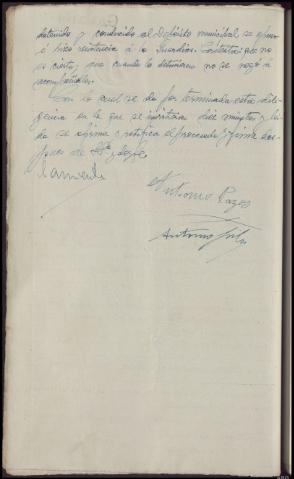 detenido y conducido al Depósito municipal se
hizo resistencia a la Guardia. Contesta: que no
es cierto, que cuando lo detuvieron no se negó a
acompañarles.
Con lo cual se da por terminada esta dili-
gencia en la que se invirtieron diez minutos y leí-
da se afirma y ratifica el procesado y firma des-
pues de S.Sª, doy fe
Antonio Pazos
Antonio